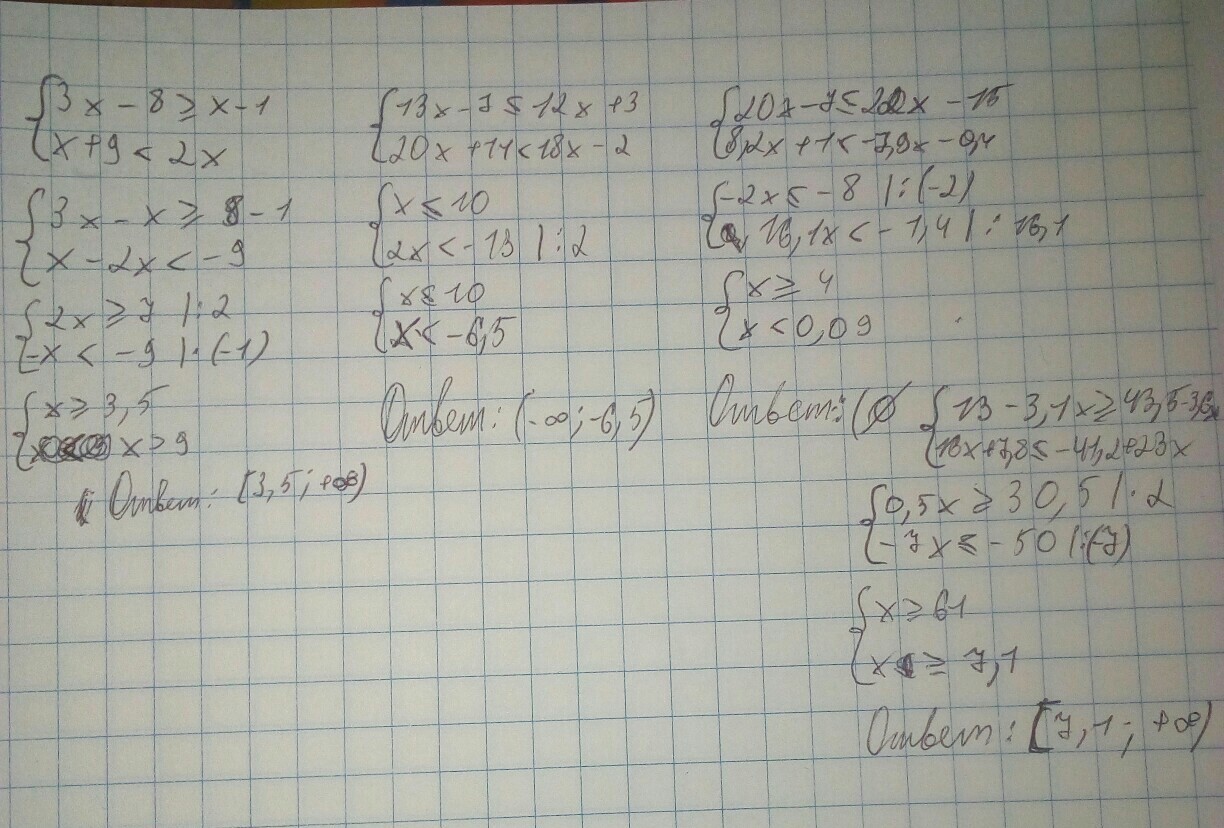 3x - 8 ≥ x - 1
x + 9 < 2x
3x - x ≥ 8 - 1
x - 2x < -9
2x ≥ 7 |:2
-x < -9 |:(-1)
x ≥ 3,5
x > 9
Ответ: [3,5; +∞)
13x - 7 ≤ 12x + 3
20x + 11 < 18x - 2
x ≤ 10
2x < -13 |:2
x ≤ 10
x < -6,5
Ответ: (-∞; -6,5)
20x - 7 ≤ 22x - 15
8,2x + 1 < -7,9x - 0,4
-2x ≤ -8 |:(-2)
16,1x < -1,4 |:16,1
x ≥ 4
x < 0,09
Ответ: ∅
13 - 3,1x ≥ 43,5 - 3,6x
16x + 7,8 ≤ -41,2 + 23x
0,5x ≥ 30,5 |·2
-7x ≤ -50 |:(-7)
x ≥ 61
x ≥ 7,1
Ответ: [7,1; +∞)